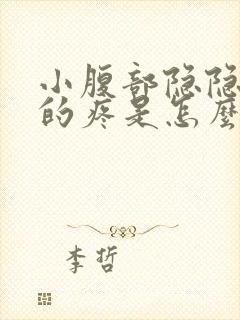 小腹部隐隐
的疼是怎麽
李哲